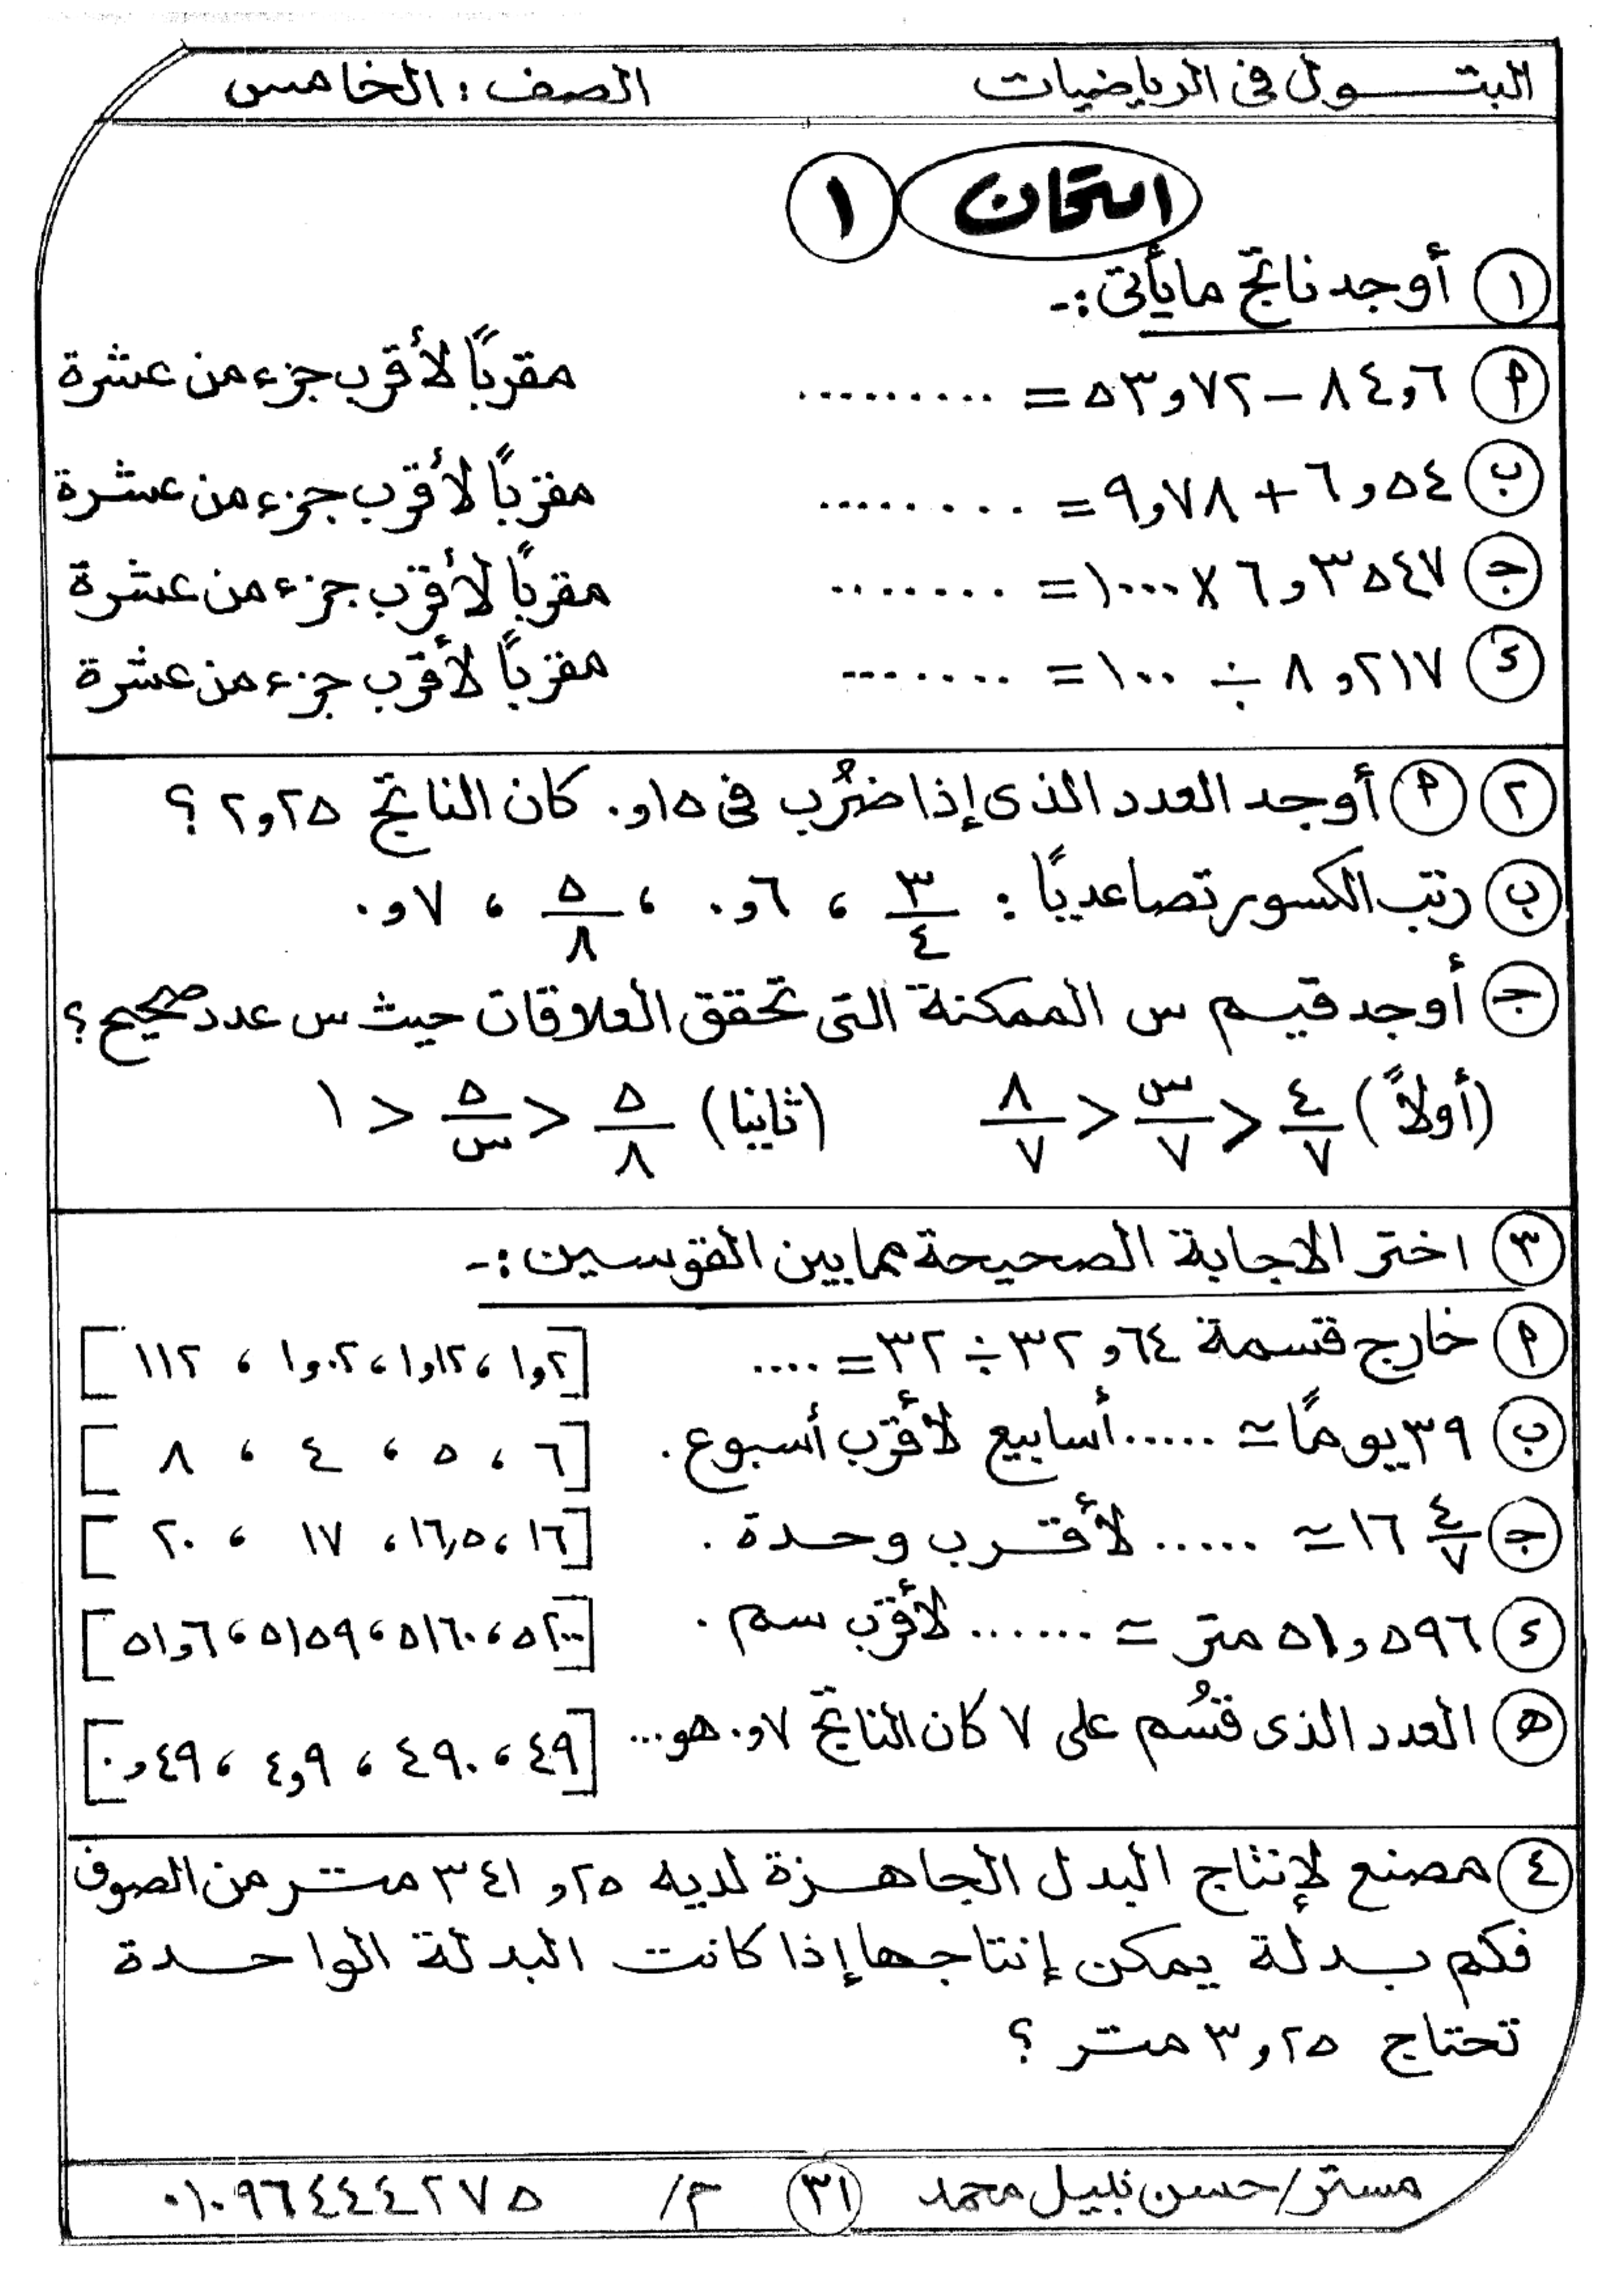 البتـــول فى الرياضيات الصف : الخامس
امتحان ١
١ أوجد ناتج مايأتى :-
P ٨٤,٦ - ٥٣,٧٢ = ......... مقربًا لأقرب جزء من عشرة
ب ٦,٥٤ + ٩,٧٨ = ......... مقربًا لأقرب جزء من عشرة
جـ ٦,٣٥٤٧ × ١٠٠٠ = ........ مقربًا لأقرب جزء من عشرة
د ٨,٢١٧ ÷ ١٠٠ = ........ مقربًا لأقرب جزء من عشرة
٢ P أوجد العدد الذى إذا ضُرب فى ٠,١٥ كان الناتج ٢,٢٥ ؟
ب رتب الكسور تصاعديًا : ٣/٤ ، ٠,٦ ، ٥/٨ ، ٠,٧
جـ أوجد قيم س الممكنة التى تحقق العلاقات حيث س عدد صحيح ؟
(أولاً) ٤/٧ < س/٧ < ٨/٧ (ثانيا) ٥/٨ < ٥/س < ١
٣ اختر الاجابة الصحيحة مما بين القوسين :-
P خارج قسمة ٣٢,٦٤ ÷ ٣٢ = .... [١,٢ ، ١,١٢ ، ١,٠٢ ، ١١٢]
ب ٣٩ يومًا ≃ ..... أسابيع لأقرب أسبوع . [٦ ، ٥ ، ٤ ، ٨]
جـ ١٦ ٤/٧ ≃ ..... لأقرب وحدة . [١٦ ، ١٦,٥ ، ١٧ ، ٢٠]
د ٥١,٥٩٦ متر ≃ ...... لأقرب سم . [٥٢٠٠ ، ٥١٦٠ ، ٥١٥٩ ، ٥١,٦]
هـ العدد الذى قسُم على ٧ كان الناتج ٠,٧ هو... [٤٩ ، ٤٩٠ ، ٤,٩ ، ٠,٤٩]
٤ مصنع لإنتاج البدل الجاهزة لديه ٣٤١,٢٥ متر من الصوف
فكم بدلة يمكن إنتاجها إذا كانت البدلة الواحدة
تحتاج ٣,٢٥ متر ؟
مستر/حسن نبيل محمد ٣١ م/ ٠١٠٩٦٤٤٤٢٧٥